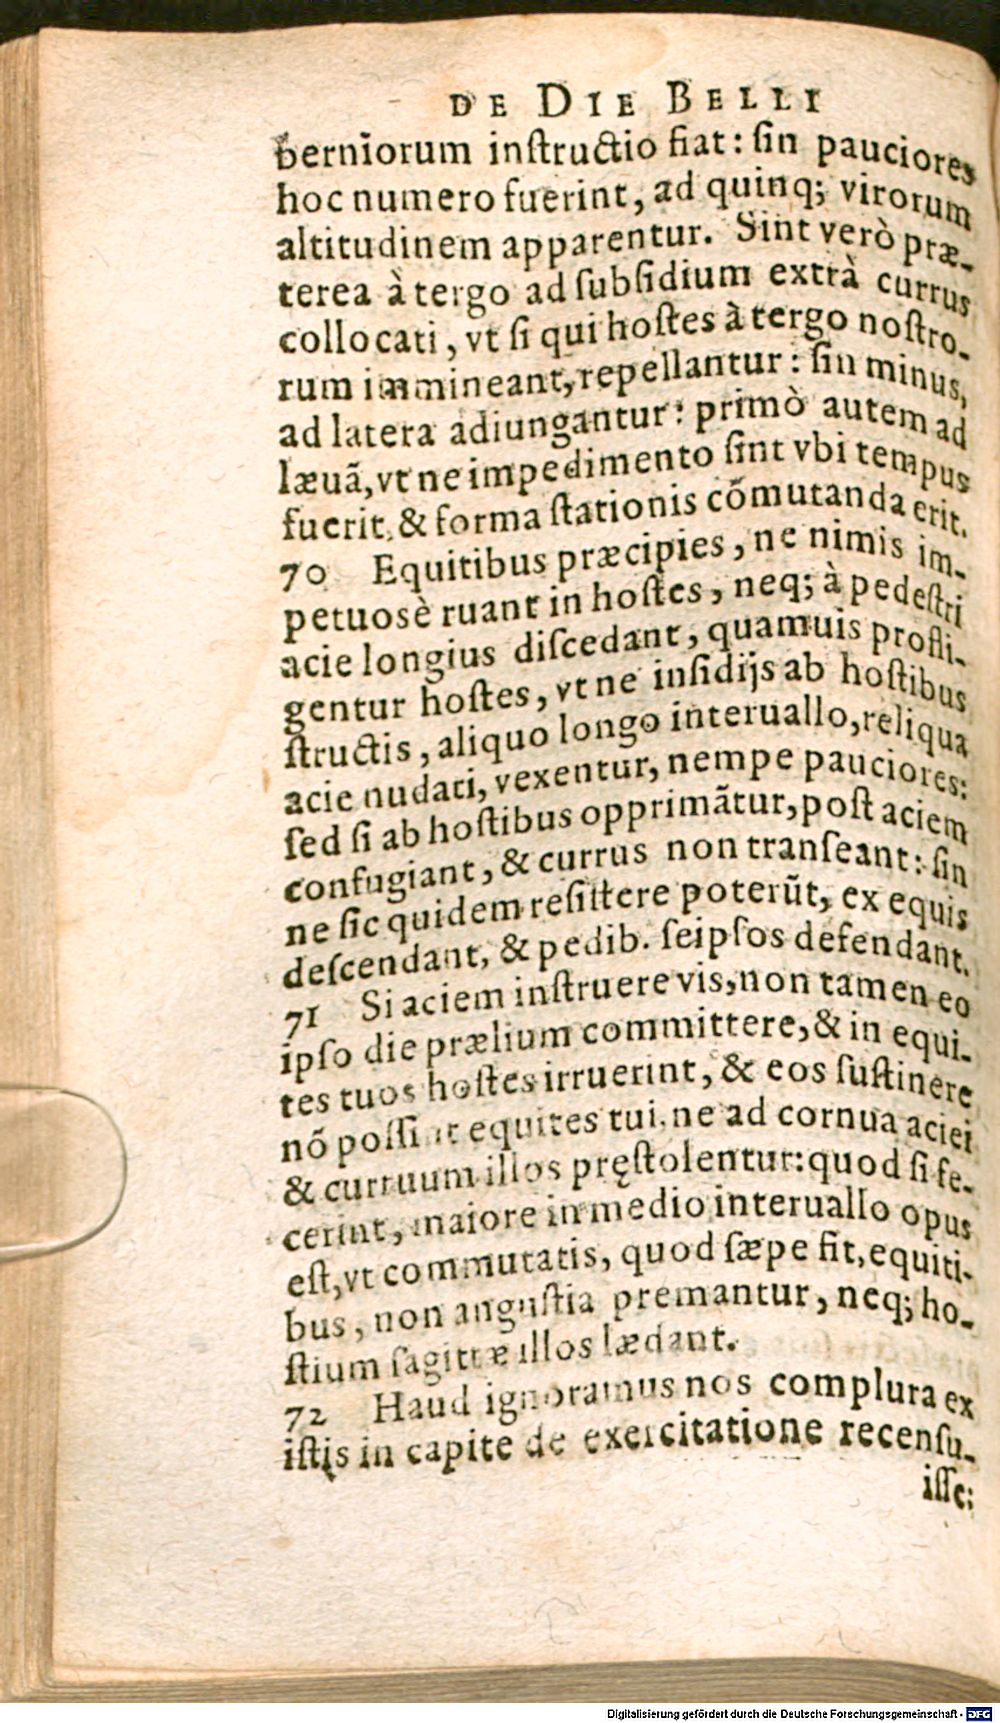 DE DIE BELLI
berniorum inſtructio fiat: ſin pauciores
hoc numero fuerint, ad quinq; virorum
altitudinem apparentur. Sint verò præ-
terea à tergo ad ſubſidium extrà currus
collocati, vt ſi qui hoſtes à tergo noſtro-
rum immineant, repellantur: ſin minus,
ad latera adiungantur: primò autem ad
læuã, vt ne impedimento ſint vbi tempus
fuerit, & forma ſtationis cõmutanda erit.
70 Equitibus præcipies, ne nimis im-
petuosè ruant in hoſtes, neq; à pedeſtri
acie longius diſcedant, quamuis profli-
gentur hoſtes, vt ne inſidijs ab hoſtibus
ſtructis, aliquo longo interuallo, reliqua
acie nudati, vexentur, nempe pauciores:
ſed ſi ab hoſtibus opprimãtur, poſt aciem
confugiant, & currus non tranſeant: ſin
ne ſic quidem reſiſtere poterũt, ex equis
deſcendant, & pedib. ſeipſos defendant.
71 Si aciem inſtruere vis, non tamen eo
ipſo die prælium committere, & in equi-
tes tuos hoſtes irruerint, & eos ſuſtinere
nõ poſſint equites tui, ne ad cornua aciei
& curruum illos pręſtolentur: quod ſi fe-
cerint, maiore in medio interuallo opus
eſt, vt commutatis, quod ſæpe fit, equiti-
bus, non anguſtia premantur, neq; ho-
ſtium ſagittæ illos lædant.
72 Haud ignoramus nos complura ex
iſtis in capite de exercitatione recenſu-
iſſe:
Digitalisierung gefördert durch die Deutsche Forschungsgemeinschaft - DFG